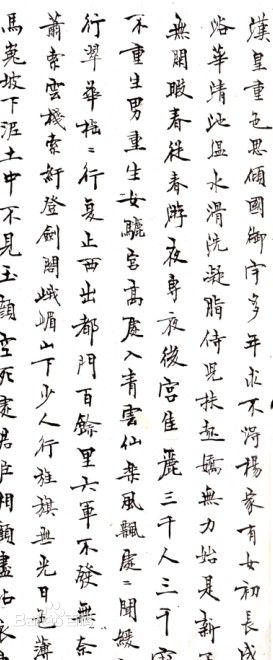 漢皇重色思傾國御宇多年求不得楊家有女初長成
浴華清池温水滑洗凝脂侍児扶起嬌無力始是新
無閑暇春從春游夜專夜後宮佳麗三千人三千寵
不重生男重生女驪宮高處入青雲仙樂風飄處〻聞緩
行翠華摇〻行复止西出都門百餘里六軍不發無奈
蕭索雲棧縈紆登劍閣峨嵋山下少人行旌旗無光日色薄
馬嵬坡下泥土中不見玉顔空死處君臣相顧盡沾衣